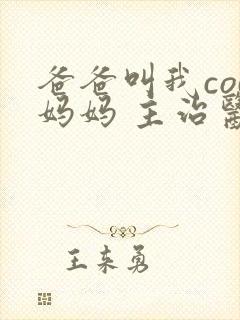 爸爸叫我co
妈妈 主治
王来勇